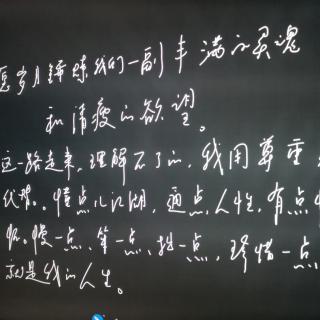 愿岁月锤炼我们一副丰满的灵魂
和清瘦的欲望。
这一路走来，理解不了的，我用尊重
代替。懂点儿江湖，通点人性，有点
慢一点，笨一点，拙一点，珍惜一点
就是我的人生。